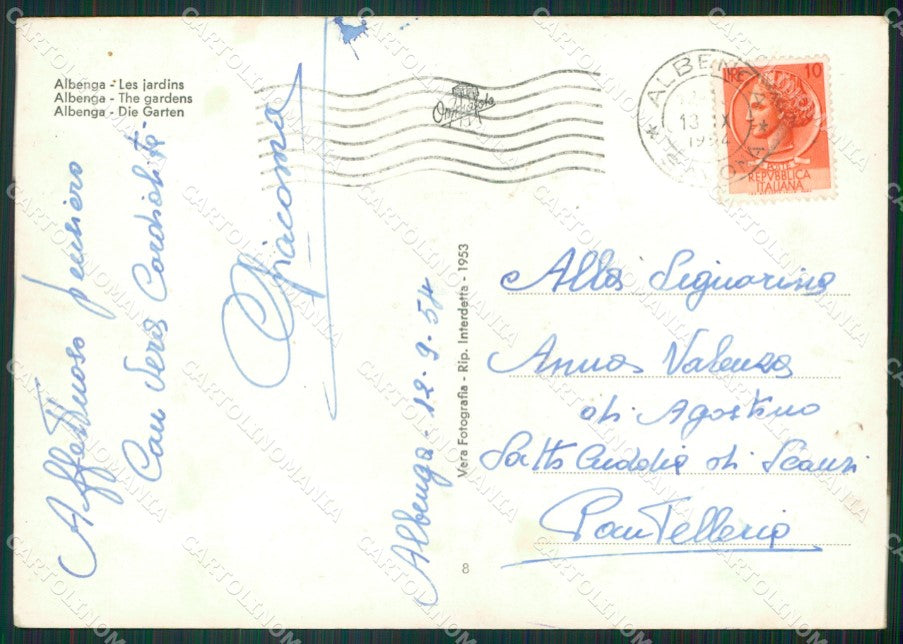 Albenga - Les jardins
Albenga - The gardens
Albenga - Die Garten
Affettuoso pensiero
Con vera Cordialità
Giacoma
Albenga - 12-9-54
Vera Fotografia - Rip. Interdetta - 1953
8
ALBENGA
13 IX
LIRE 10
POSTE
REPVBBLICA
ITALIANA
Alla Signorina
Anna Valenza
di Agostino
Sotto Cuddia di Scauri
Pantelleria
CARTOLINOMANIA